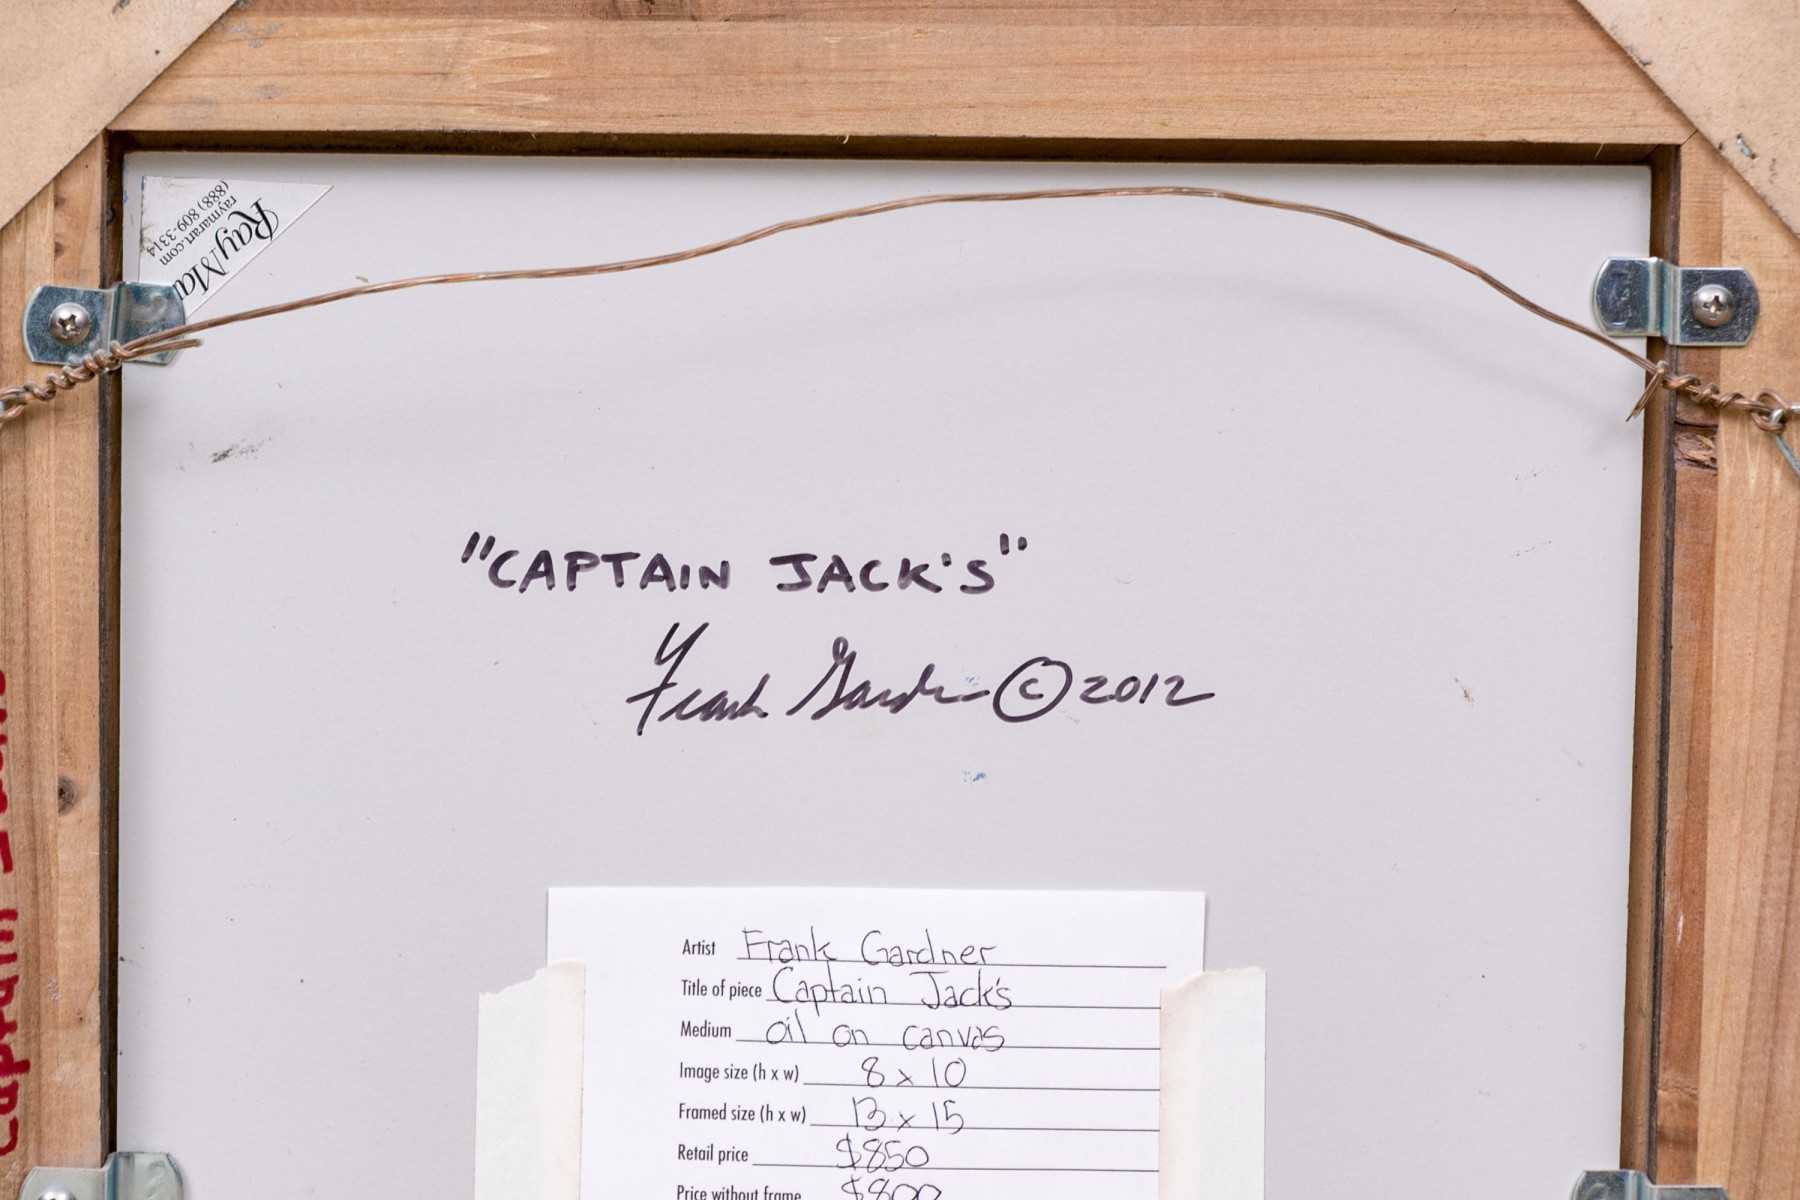 RayMar
raymarart.com
(888) 809-3314
"CAPTAIN JACK'S"
Frank Gardner © 2012
Artist Frank Gardner
Title of piece Captain Jack's
Medium oil on canvas
Image size (h x w) 8 x 10
Framed size (h x w) 13 x 15
Retail price $850
Price without frame $800
Captain